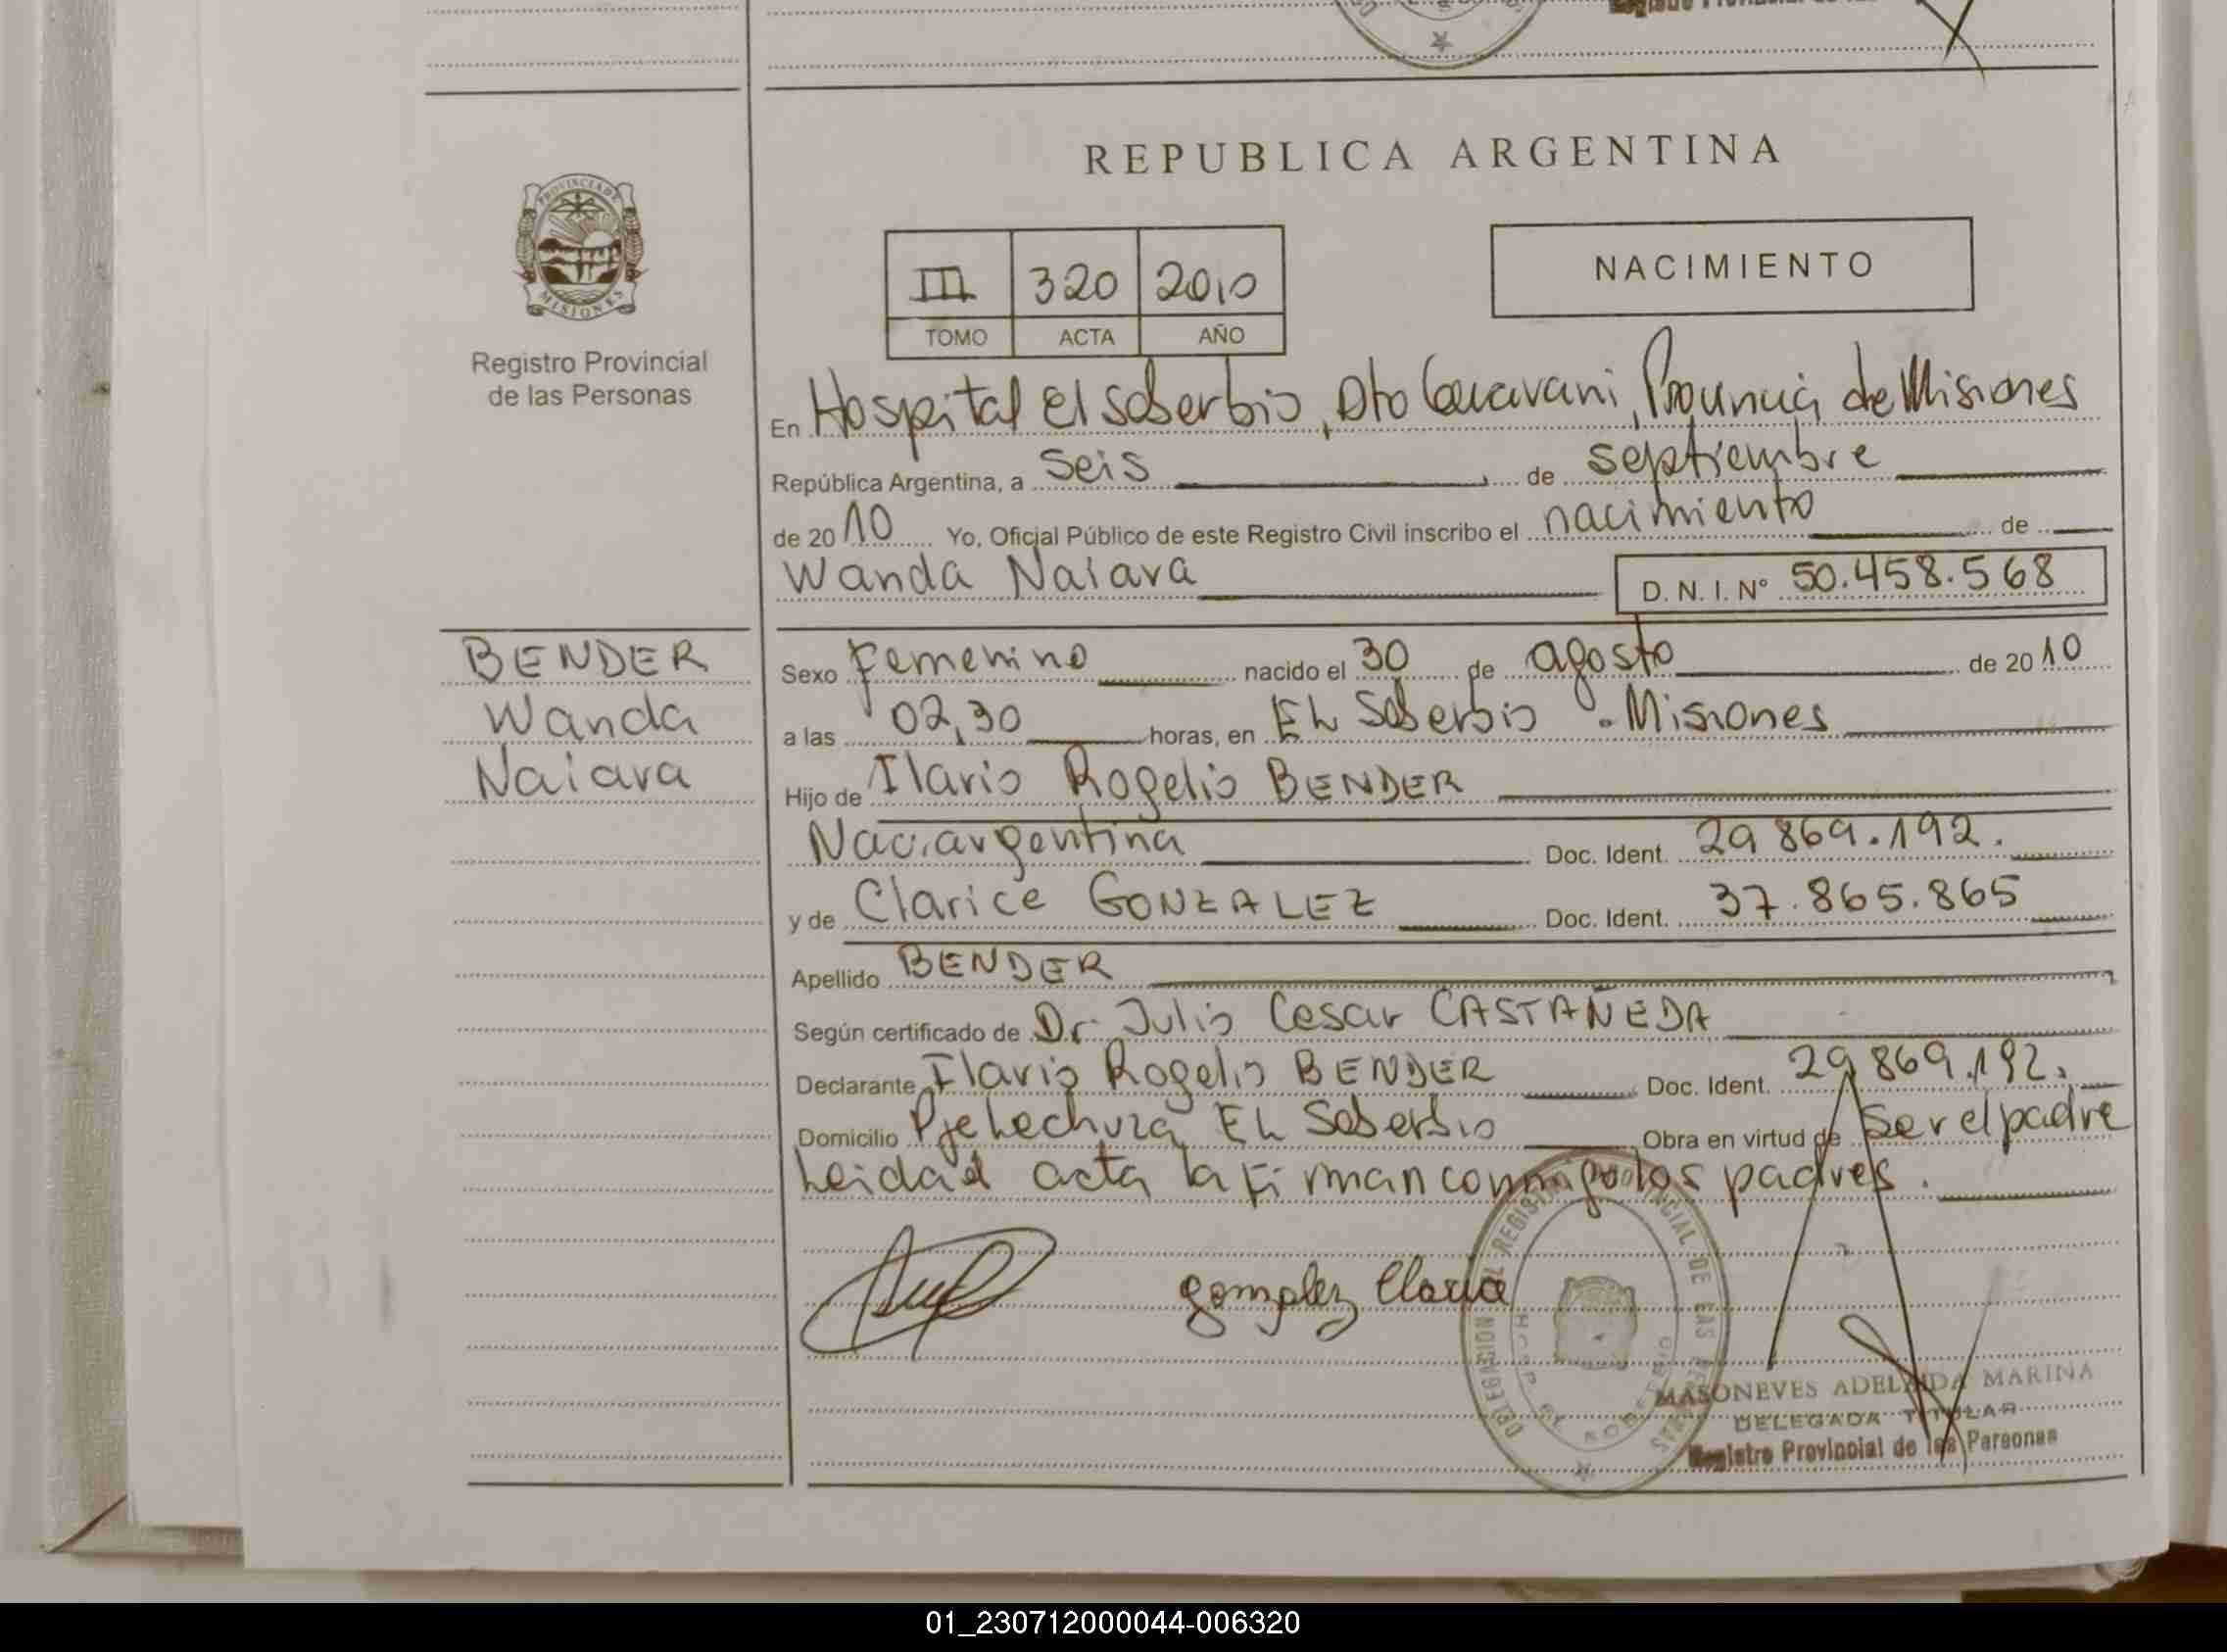 REPUBLICA ARGENTINA
PROVINCIA DE
MISIONES
Registro Provincial
de las Personas
III 320 2010
TOMO ACTA AÑO
NACIMIENTO
En Hospital El Soberbio, Dto Guaravani, Provincia de Misiones
República Argentina, a seis de septiembre
de 2010 Yo, Oficial Público de este Registro Civil inscribo el nacimiento de
Wanda Naiara D. N. I. Nº 50.458.568
BENDER
Wanda
Naiara
Sexo Femenino nacido el 30 de agosto de 2010
a las 02,30 horas, en El Soberbio - Misiones
Hijo de Ilario Rogelio BENDER
Nac. argentina Doc. Ident. 29 869.192.
y de Clarice GONZALEZ Doc. Ident. 37.865.865
Apellido BENDER
Según certificado de Dr. Julio Cesar CASTAÑEDA
Declarante Ilario Rogelio BENDER Doc. Ident. 29 869.192.
Domicilio Pje Lechuza El Soberbio Obra en virtud de ser el padre
Leida el acta la firman conmigo los padres.
gonzalez
DELEGACION REGISTRO PROVINCIAL DE LAS PERSONAS
HOSP. EL SOBERBIO
MASONEVES ADELAIDA MARINA
DELEGADA TITULAR
Registro Provincial de las Personas
01_230712000044-006320